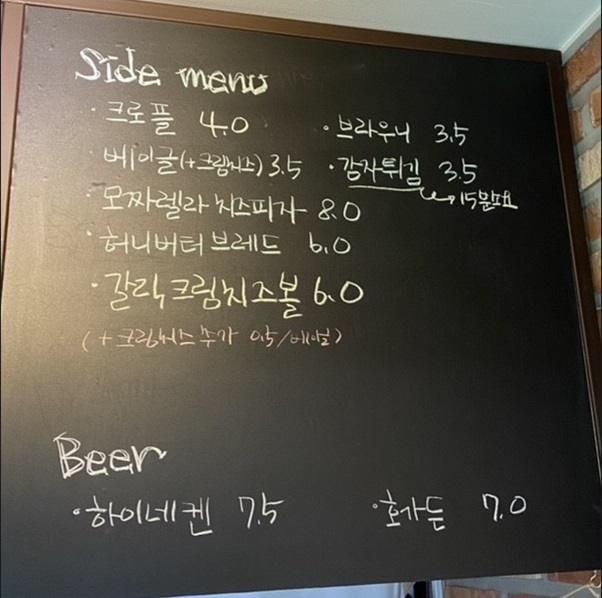 Side menu
· 크로플 4.0
· 브라우니 3.5
베이글(+크림치즈) 3.5
· 감자튀김 3.5
15분소요
· 모짜렐라 치즈피자 8.0
· 허니버터 브레드 6.0
· 갈릭크림치즈볼 6.0
(+크림치즈 추가 0.5/베이글)
Beer
· 하이네켄 7.5
· 호가든 7.0